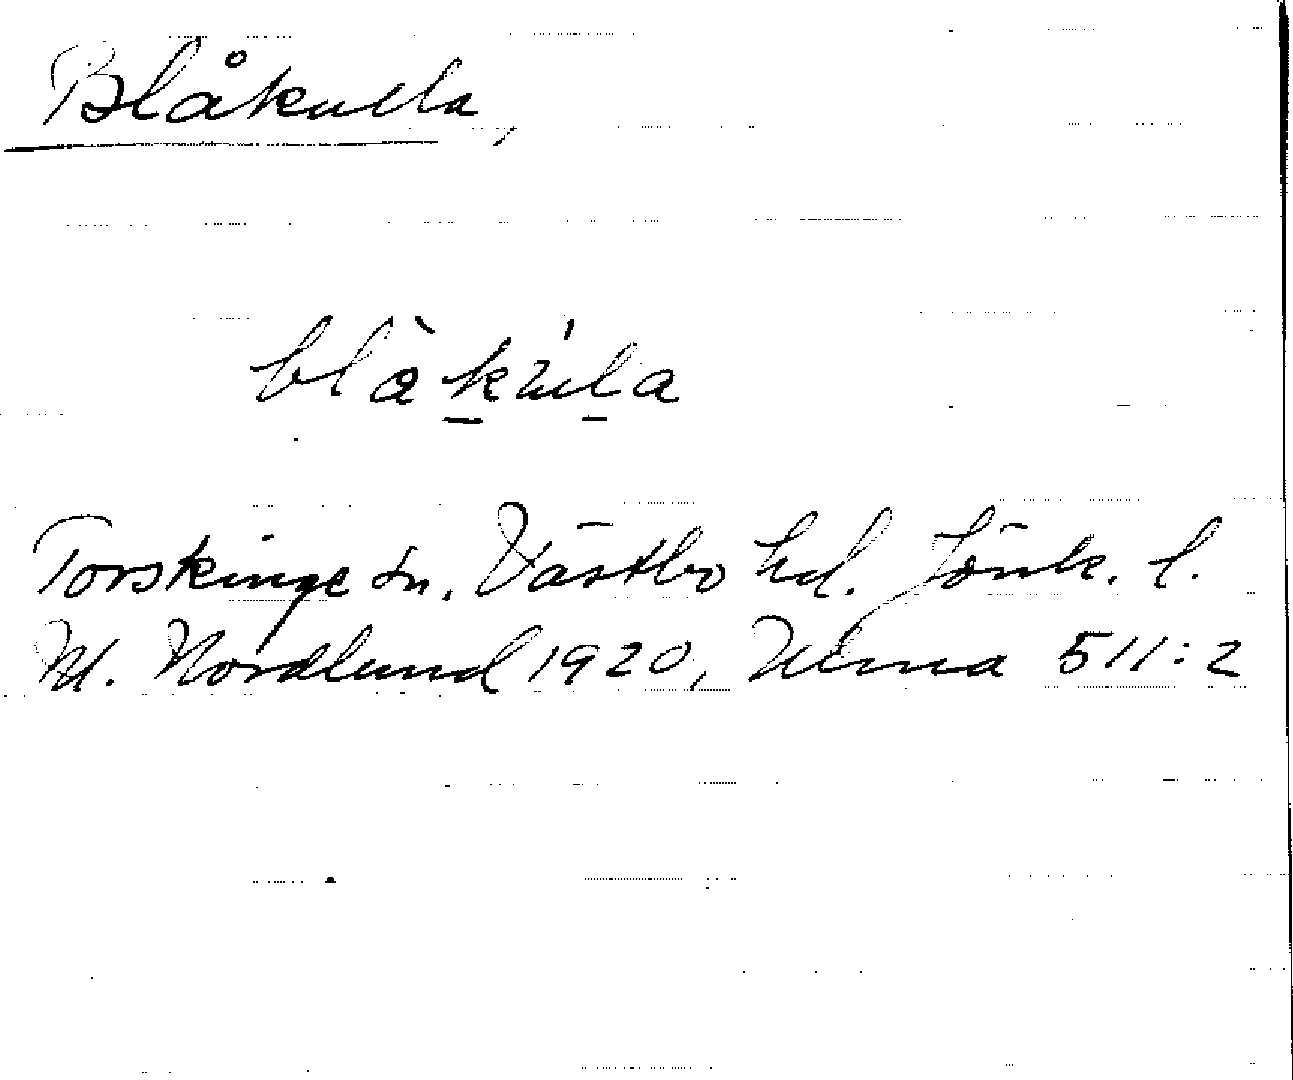 Blåkulla,
blàk̲úl̲a
Torskinge sn. Västbo hd. Jönk. l.
M. Nordlund 1920, Ulma 511:2